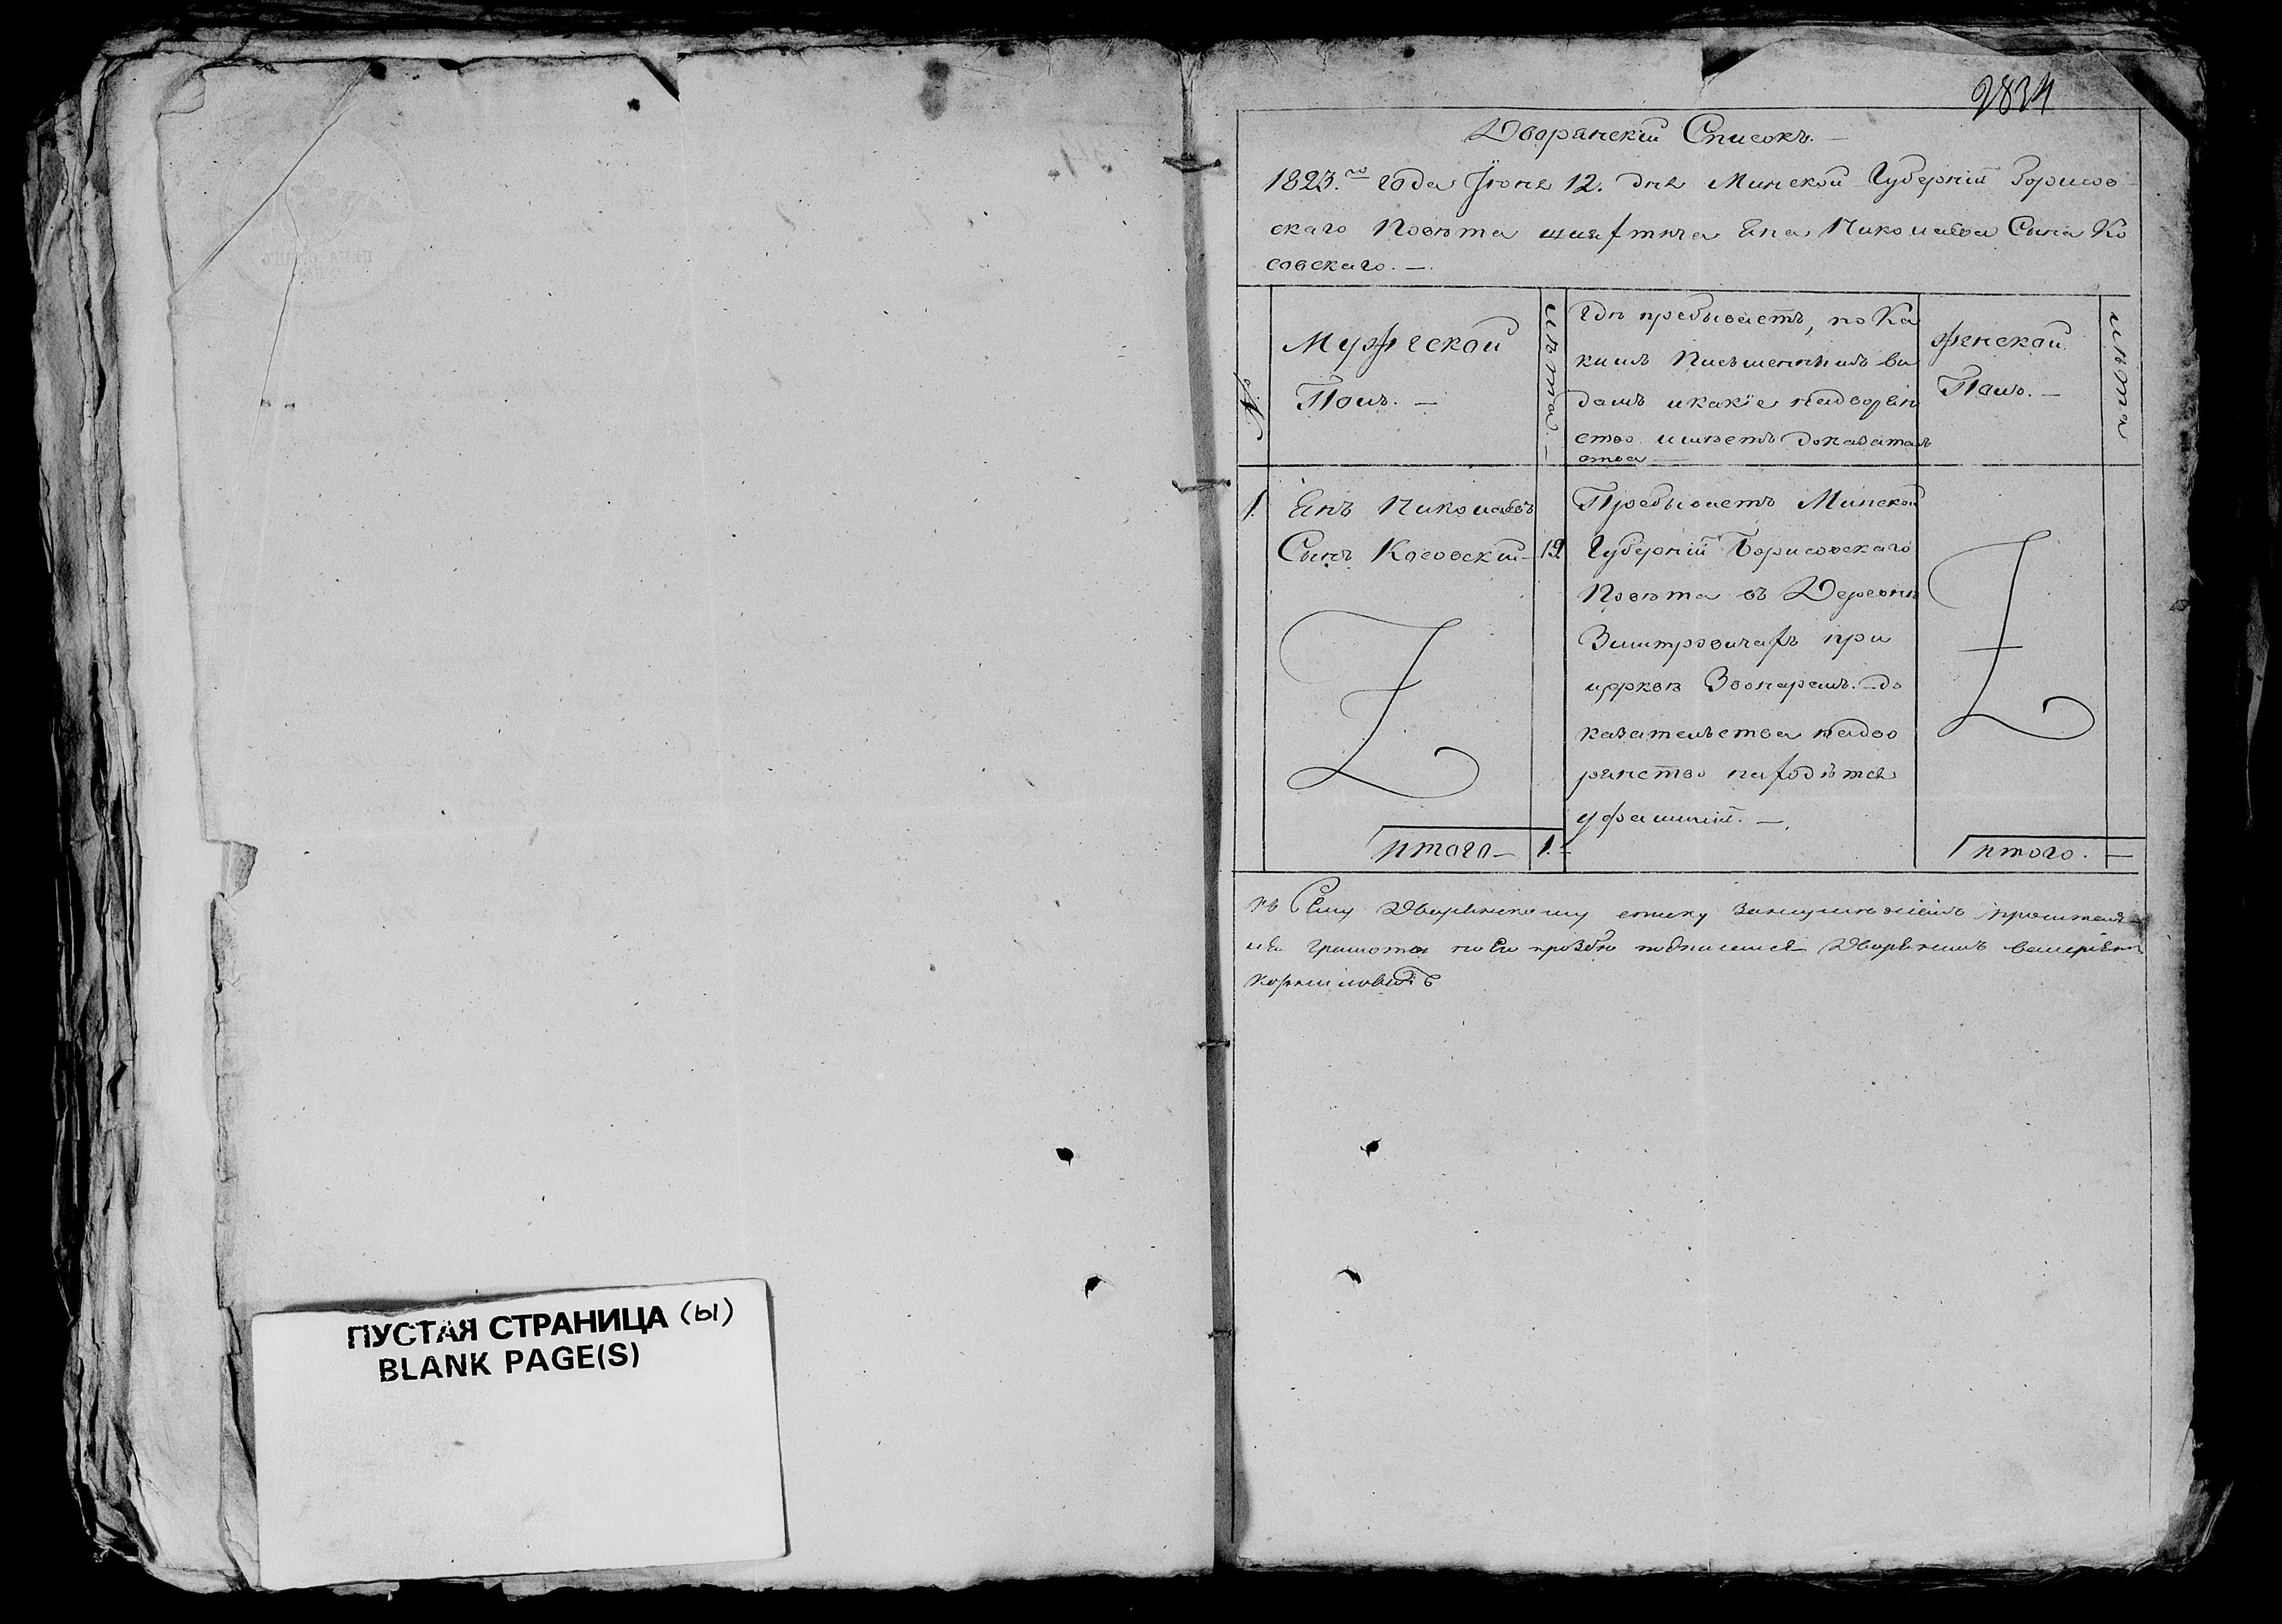 ПУСТАЯ СТРАНИЦА (ы)
BLANK PAGE(S)
2834
Дворянскій Списокъ. —
1823.го года Іюня 12. дня Минской Губерніи Борисов
скаго Повѣта шляхтича Яна Николаева Сына Ко
совскаго. —
№
Мужеской
Полъ. —
лѣта. —
Гдѣ пребываетъ, по Ка
кимъ Писменнымъ ви
дамъ и какіе надворян
ство имѣетъ доказатель
ства —
женской
Полъ. —
лѣта
1. Янъ Николаевъ
Сынъ Косовскій — 19.
Пребываетъ Минской
Губерніи Борисовскаго
Повѣта въ Деревни
Змитровичахъ при
церкви Звонаремъ. — до
казательства надво
рянство находятся
уфамиліи. —
Итого — 1. —
Итого. —
къ Сему Дворянскому списку
грамоты по Его прозбѣ подписался Дворянинъ